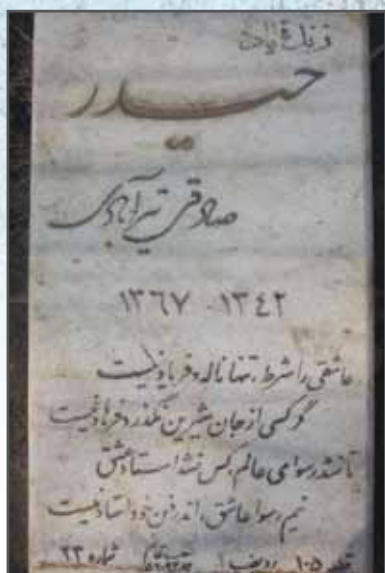 زنده یاد
حیدر
صادقی تیرآبادی
۱۳۴۲ - ۱۳۶۷
عاشقی را شرط، تنها ناله و فریاد نیست
گر کسی از جان شیرین نگذرد فرهاد نیست
تا نشد رسوای عالم، کس نشد استاد عشق
نیم رسوا عاشق، اندر فن خود استاد نیست
قطعه ۱۰۵ ردیف ۱ شماره ۲۳